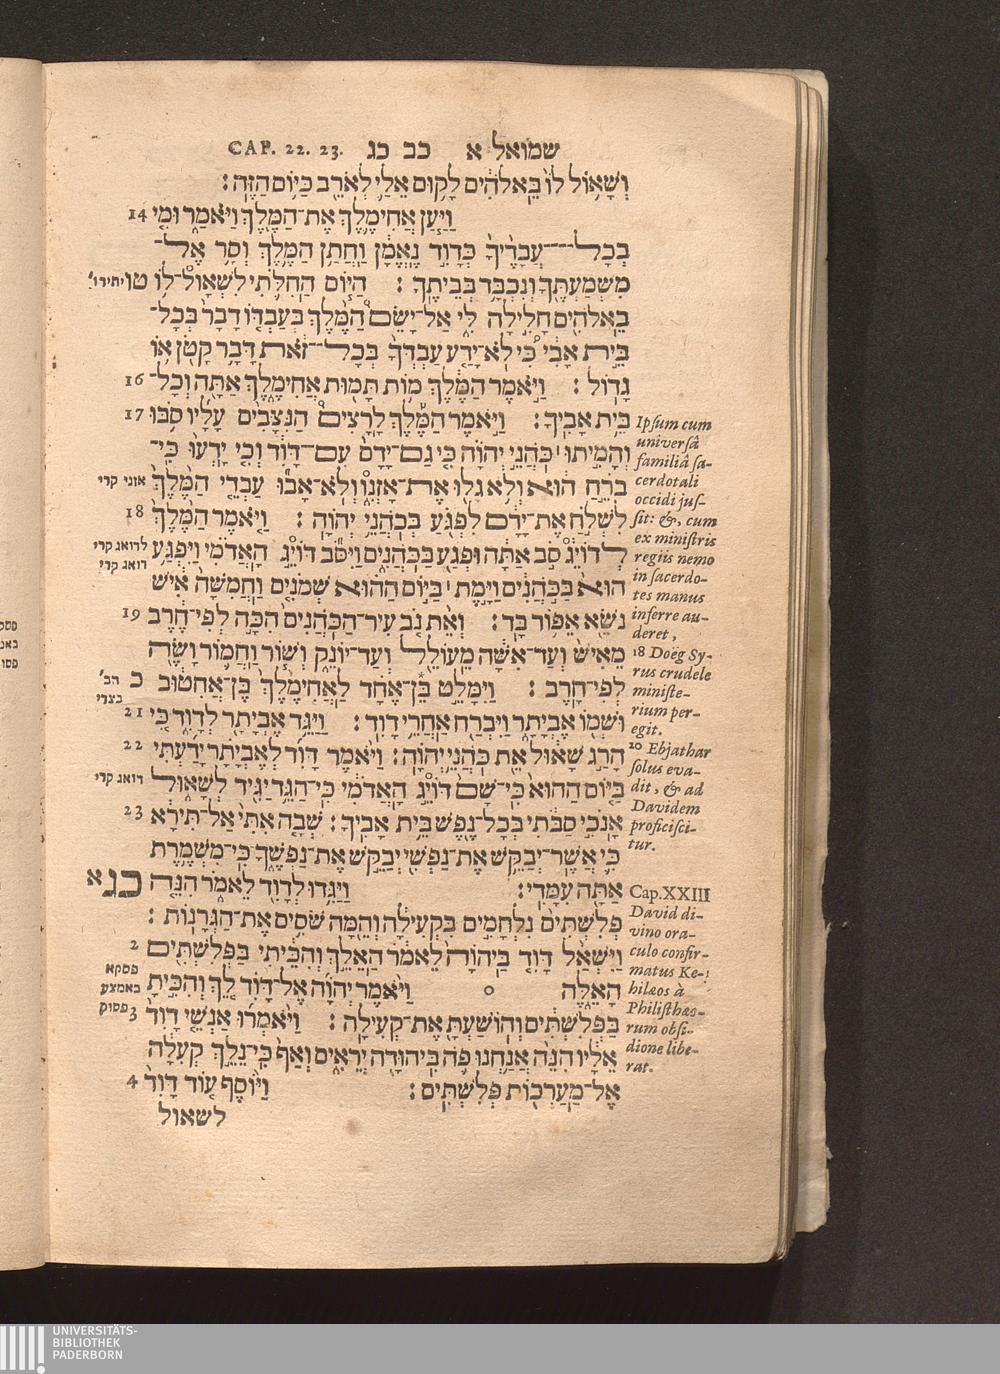 שמואל א כב כג CAP. 22. 23.
וְשָׁא֥וֹל לוֹ֙ בֵּֽאלֹהִ֔ים לָק֥וּם אֵלַ֛י לְאֹרֵ֖ב כַּיּ֥וֹם הַזֶּֽה׃
וַיַּ֧עַן אֲחִימֶ֛לֶךְ אֶת־הַמֶּ֖לֶךְ וַיֹּאמַ֑ר וּמִ֤י 14
בְכָל־עֲבָדֶ֙יךָ֙ כְּדָוִ֣ד נֶאֱמָ֔ן וַחֲתַ֥ן הַמֶּ֛לֶךְ וְסָ֥ר אֶל־
מִשְׁמַעְתֶּ֖ךָ וְנִכְבָּ֥ד בְּבֵיתֶֽךָ׃ הַיּ֧וֹם הַחִלֹּ֛תִי לִשְׁאָול־ל֥וֹ טו יתיר ו'
בֵאלֹהִ֖ים חָלִ֣ילָה לִּ֑י אַל־יָשֵׂם֩ הַמֶּ֨לֶךְ בְּעַבְדּ֤וֹ דָבָר֙ בְּכָל־
בֵּ֣ית אָבִ֔י כִּ֠י לֹֽא־יָדַ֤ע עַבְדְּךָ֙ בְּכָל־זֹ֔את דָּבָ֥ר קָטֹ֖ן א֥וֹ
גָדֽוֹל׃ וַיֹּ֣אמֶר הַמֶּ֔לֶךְ מ֥וֹת תָּמ֖וּת אֲחִימֶ֑לֶךְ אַתָּ֖ה וְכָל־ 16
בֵּ֥ית אָבִֽיךָ׃ וַיֹּ֣אמֶר הַמֶּ֡לֶךְ לָרָצִים֩ הַנִּצָּבִ֨ים עָלָ֜יו סֹ֥בּוּ 17
וְהָמִ֣יתוּ׀ כֹּהֲנֵ֣י יְהוָ֗ה כִּ֤י גַם־יָדָם֙ עִם־דָּוִ֔ד וְכִ֤י יָֽדְעוּ֙ כִּֽי־
בֹרֵ֣חַ ה֔וּא וְלֹ֥א גָל֖וּ אֶת־אָזְנ֑וֹ וְלֹֽא־אָב֞וּ עַבְדֵ֤י הַמֶּ֙לֶךְ֙ אזני קרי
לִשְׁלֹ֣חַ אֶת־יָדָ֔ם לִפְגֹ֖עַ בְּכֹהֲנֵ֥י יְהוָֽה׃ וַיֹּ֤אמֶר הַמֶּ֙לֶךְ֙ 18
לְדוֹיֵ֔ג סֹ֣ב אַתָּ֔ה וּפְגַ֖ע בַּכֹּהֲנִ֑ים וַיִּסֹּ֞ב דּוֹיֵ֣ג הָאֲדֹמִ֗י וַיִּפְגַּע־ לדואג קרי
דואג קרי
הוּא֮ בַּכֹּהֲנִים֒ וַיָּ֣מֶת׀ בַּיּ֣וֹם הַה֗וּא שְׁמֹנִ֤ים וַחֲמִשָּׁה֙ אִ֔ישׁ
נֹשֵׂ֖א אֵפ֥וֹד בָּֽד׃ וְאֵ֨ת נֹ֤ב עִיר־הַכֹּֽהֲנִים֙ הִכָּ֣ה לְפִי־חֶ֔רֶב 19
מֵאִישׁ֙ וְעַד־אִשָּׁ֔ה מֵעוֹלֵ֖ל וְעַד־יוֹנֵ֑ק וְשׁ֧וֹר וַחֲמ֛וֹר וָשֶׂ֖ה
לְפִי־חָֽרֶב׃ וַיִּמָּלֵ֣ט בֵּן־אֶחָ֗ד לַאֲחִימֶ֙לֶךְ֙ בֶּן־אֲחִט֔וּב כ הב'
בצרי
וּשְׁמ֖וֹ אֶבְיָתָ֑ר וַיִּבְרַ֖ח אַחֲרֵ֥י דָוִֽד׃ וַיַּגֵּ֥ד אֶבְיָתָ֖ר לְדָוִ֑ד כִּ֚י 21
הָרַ֣ג שָׁא֔וּל אֵ֖ת כֹּהֲנֵ֥י יְהוָֽה׃ וַיֹּ֨אמֶר דָּוִ֜ד לְאֶבְיָתָ֗ר יָדַ֜עְתִּי 22
בַּיּ֤וֹם הַהוּא֙ כִּֽי־שָׁם֙ דּוֹיֵ֣ג הָאֲדֹמִ֔י כִּֽי־הַגֵּ֥ד יַגִּ֖יד לְשָׁא֑וּל דואג קרי
אָנֹכִ֣י סַבֹּ֔תִי בְּכָל־נֶ֖פֶשׁ בֵּ֥ית אָבִֽיךָ׃ שְׁבָ֤ה אִתִּי֙ אַל־תִּירָ֔א 23
כִּ֛י אֲשֶׁר־יְבַקֵּ֥שׁ אֶת־נַפְשִׁ֖י יְבַקֵּ֣שׁ אֶת־נַפְשֶׁ֑ךָ כִּֽי־מִשְׁמֶ֥רֶת
אַתָּ֖ה עִמָּדִֽי׃ וַיַּגִּ֥דוּ לְדָוִ֖ד לֵאמֹ֑ר הִנֵּ֤ה כג א
פְלִשְׁתִּים֙ נִלְחָמִ֣ים בִּקְעִילָ֔ה וְהֵ֖מָּה שֹׁסִ֥ים אֶת־הַגֳּרָנֽוֹת׃
וַיִּשְׁאַ֨ל דָּוִ֤ד בַּֽיהוָה֙ לֵאמֹ֔ר הַאֵלֵ֣ךְ וְהִכֵּ֔יתִי בַּפְּלִשְׁתִּ֖ים 2
הָאֵ֑לֶּה ○ וַיֹּ֨אמֶר יְהוָ֜ה אֶל־דָּוִ֗ד לֵ֚ךְ וְהִכִּ֣יתָ פסקא
באמצע
בַפְּלִשְׁתִּ֔ים וְהוֹשַׁעְתָּ֖ אֶת־קְעִילָֽה׃ וַיֹּ֨אמְר֜וּ אַנְשֵׁ֤י דָוִד֙ 3 פסוק
אֵלָ֔יו הִנֵּ֨ה אֲנַ֥חְנוּ פֹ֛ה בִּֽיהוּדָ֖ה יְרֵאִ֑ים וְאַף֙ כִּֽי־נֵלֵ֣ךְ קְעִלָ֔ה
אֶל־מַעַרְכ֖וֹת פְּלִשְׁתִּֽים׃ וַיּ֨וֹסֶף ע֤וֹד דָּוִד֙ 4
לשאול
Ipsum cum
universâ
familiâ sa-
cerdotali
occidi jus-
sit: &, cum
ex ministris
regiis nemo
in sacerdo-
tes manus
inferre au-
deret,
18 Doëg Sy-
rus crudele
ministe-
rium per-
egit.
20 Ebjathar
solus eva-
dit, & ad
Davidem
proficisci-
tur.
Cap.XXIII
David di-
vino ora-
culo confir-
matus Ke-
hilæos à
Philisthæo-
rum obsi-
dione libe-
rat.
UNIVERSITÄTS-
BIBLIOTHEK
PADERBORN